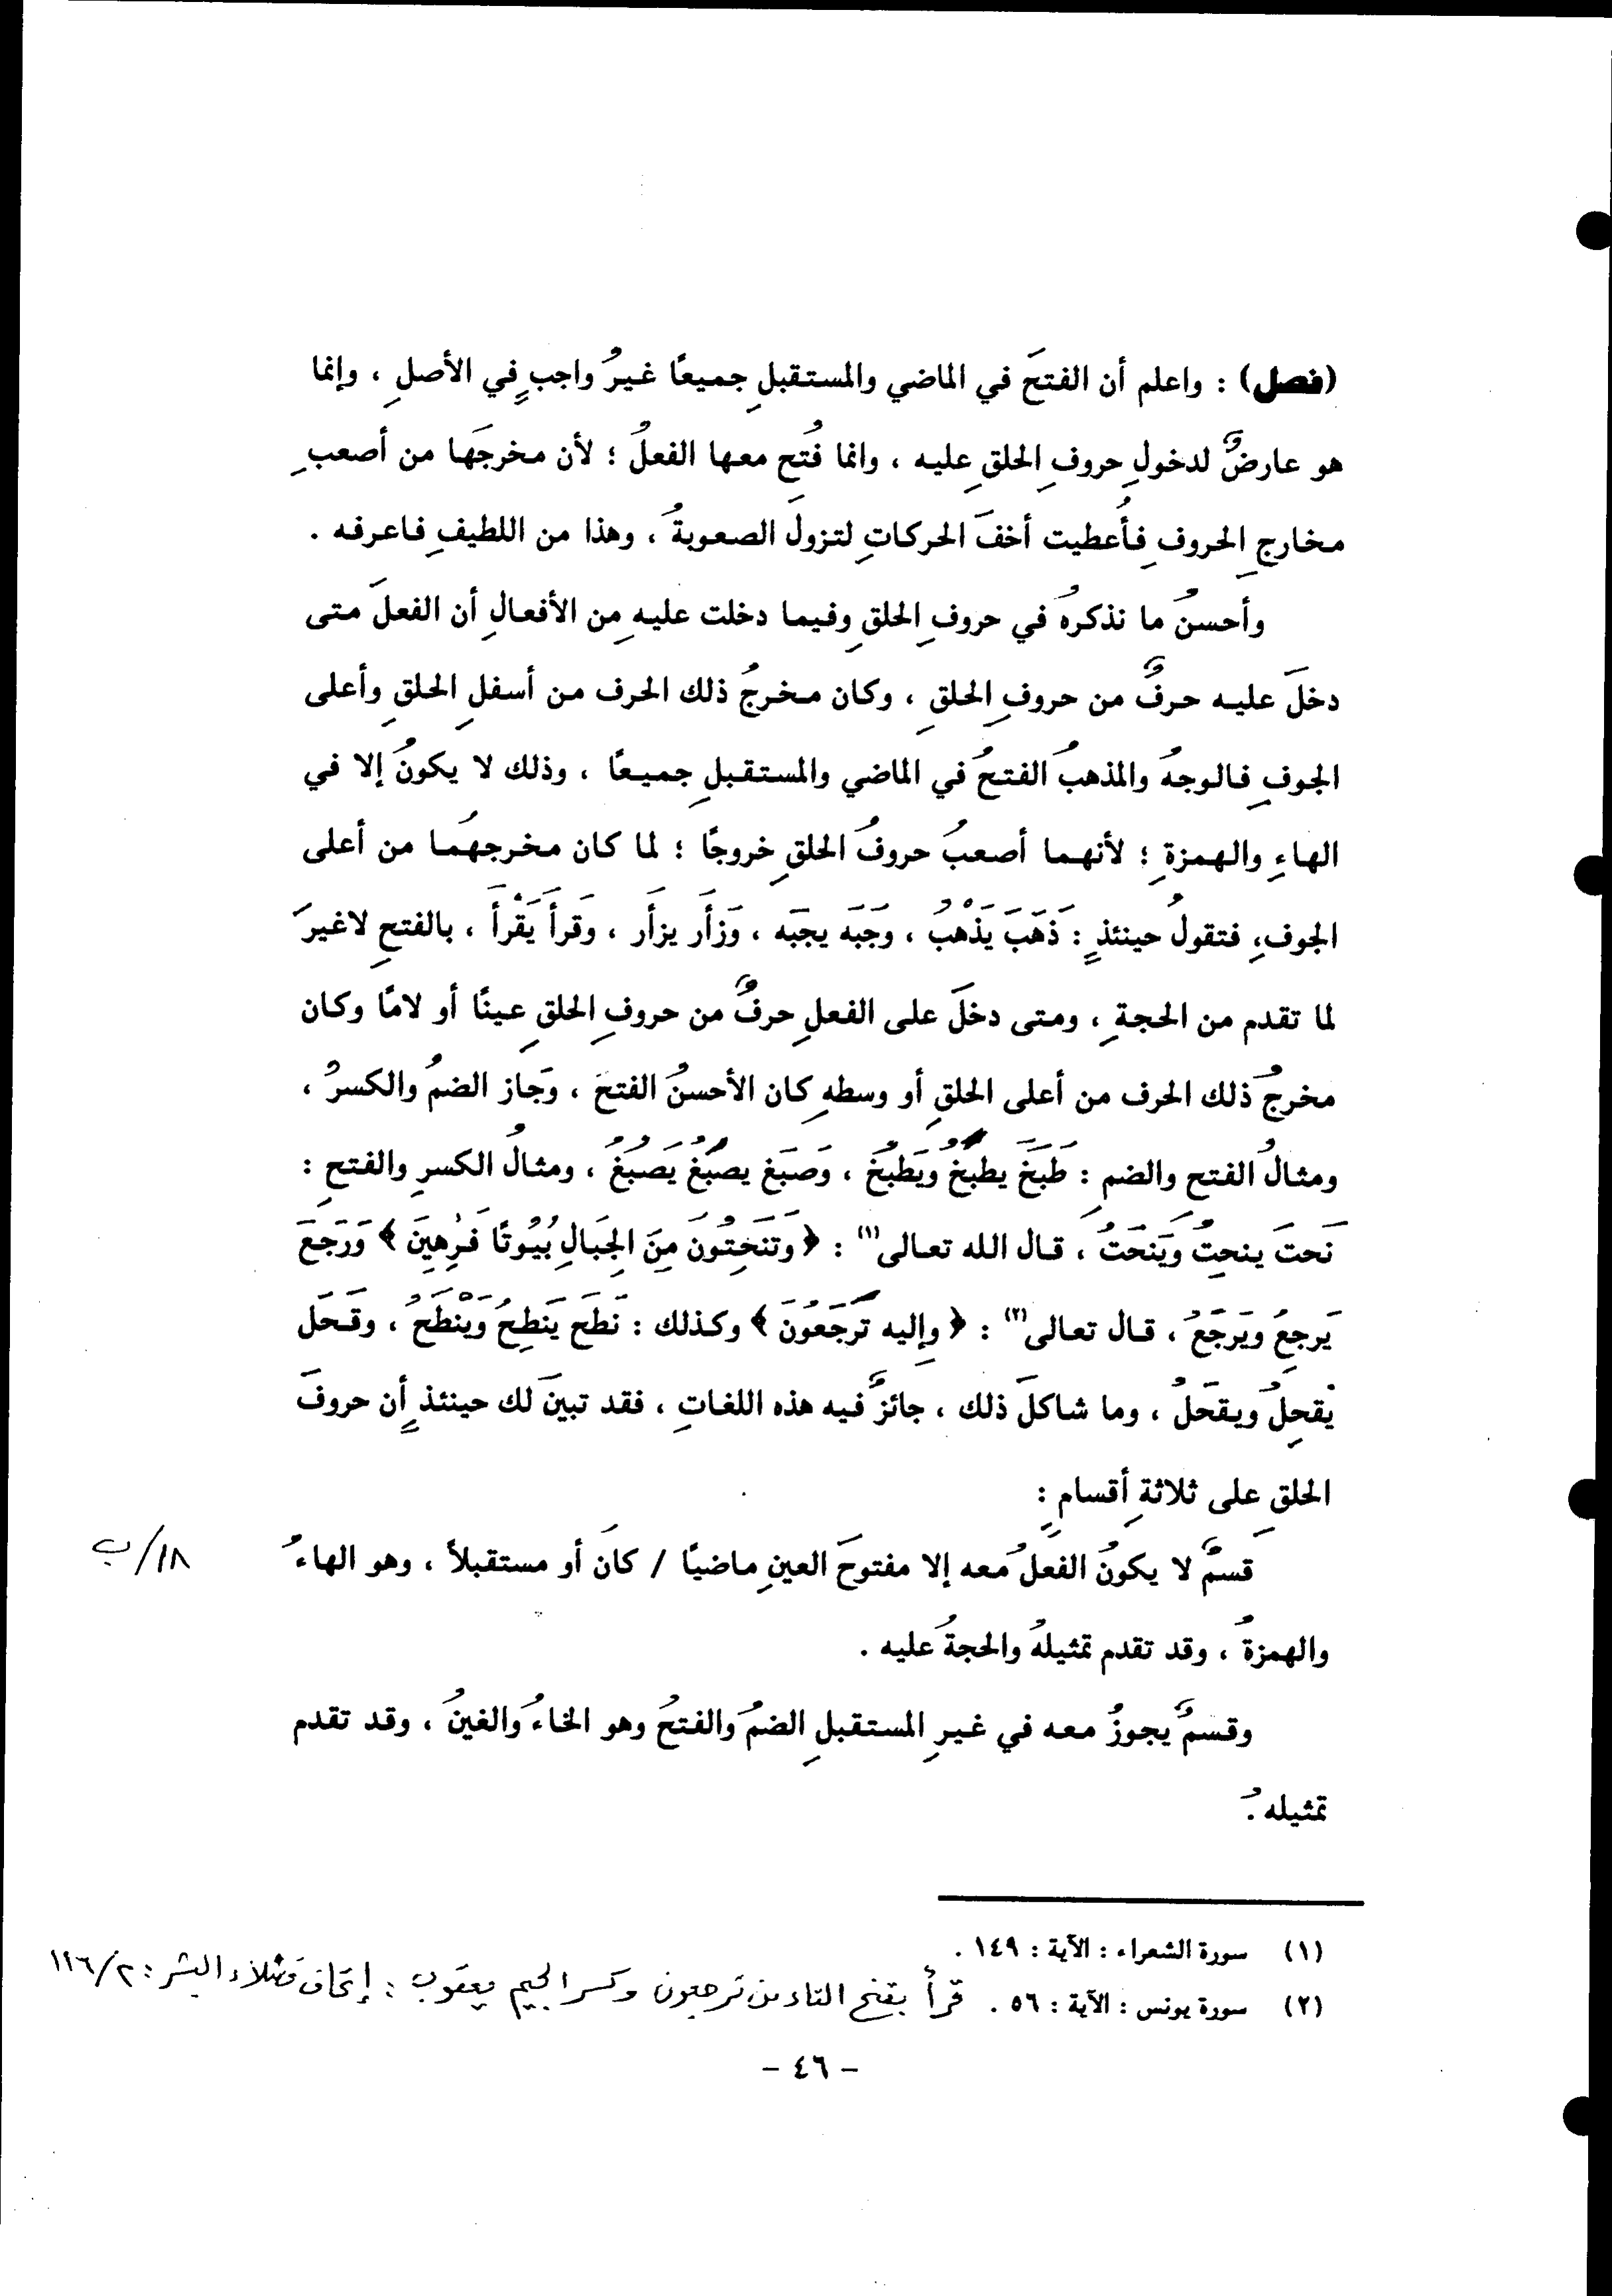 (فصل) : واعلم أن الفتحَ في الماضي والمستقبلِ جميعًا غيرُ واجبٍ في الأصلِ ، وإنما
هو عارضٌ لدخولِ حروفِ الحلقِ عليه ، وانما فُتح معها الفعلُ ؛ لأن مخرجَها من أصعبِ
مخارجِ الحروفِ فأُعطيت أخفَ الحركاتِ لتزولَ الصعوبةُ ، وهذا من اللطيفِ فاعرفه .
وأحسنُ ما نذكرهُ في حروفِ الحلقِ وفيما دخلت عليهِ من الأفعالِ أن الفعلَ متى
دخلَ عليه حرفٌ من حروفِ الحلقِ ، وكان مخرجُ ذلك الحرف من أسفلِ الحلقِ وأعلى
الجوفِ فالوجهُ والمذهبُ الفتحُ في الماضي والمستقبلِ جميعًا ، وذلك لا يكونُ إلا في
الهاءِ والهمزةِ ؛ لأنهما أصعبُ حروفُ الحلقِ خروجًا ؛ لما كان مخرجهُما من أعلى
الجوف، فتقولُ حينئذٍ : ذَهَبَ يَذْهَبُ ، وجَبَه يجبَه ، وَزأَر يزأَر ، وَقرأَ يَقْرأَ ، بالفتحِ لاغيرَ
لما تقدم من الحجةِ ، ومتى دخلَ على الفعلِ حرفٌ من حروفِ الحلقِ عينًا أو لامًا وكان
مخرجُ ذلك الحرف من أعلى الحلقِ أو وسطهِ كان الأحسنُ الفتحَ ، وَجاز الضمُ والكسرُ ،
ومثالُ الفتح والضمِ : طَبَخَ يطبَخُ ويَطبُخُ ، وَصبَغ يصبَغُ يَصبُغُ ، ومثالُ الكسرِ والفتحِ :
نَحتَ ينحِتُ ويَنحَتُ ، قال الله تعالى(١) : ﴿ وَتَنْحِتُونَ مِنَ الجِبَالِ بُيُوتًا فَٰرِهِينَ ﴾ وَرَجَعَ
يَرجِعُ ويَرجَعُ ، قال تعالى(٢) : ﴿ وإليه تُرجَعُونَ ﴾ وكذلك : نَطَح يَنطِحُ وَيَنْطَحُ ، وقَحَل
يْقحِلُ ويقحَلُ ، وما شاكلَ ذلك ، جائزٌ فيه هذه اللغاتِ ، فقد تبينَ لك حينئذٍ أن حروفَ
الحلقِ على ثلاثةِ أقسامٍ :
قَسمٌ لا يكونُ الفعلُ معه إلا مفتوحَ العينِ ماضيًا / كانَ أو مستقبلاً ، وهو الهاءُ
١٨/ب
والهمزةُ ، وقد تقدم تمثيلهُ والحجةُ عليه .
وقسمٌ يجوزُ معه في غيرِ المستقبلِ الضمُ والفتحُ وهو الخاءُ والغينُ ، وقد تقدم
تمثيلهُ .
(١) سورة الشعراء : الآية : ١٤٩ .
(٢) سورة يونس : الآية : ٥٦ . قرأ بفتح التاء من ترجعون وكسر الجيم يعقوب : إتحاف فضلاء البشر : ٢/١١٦
- ٤٦ -